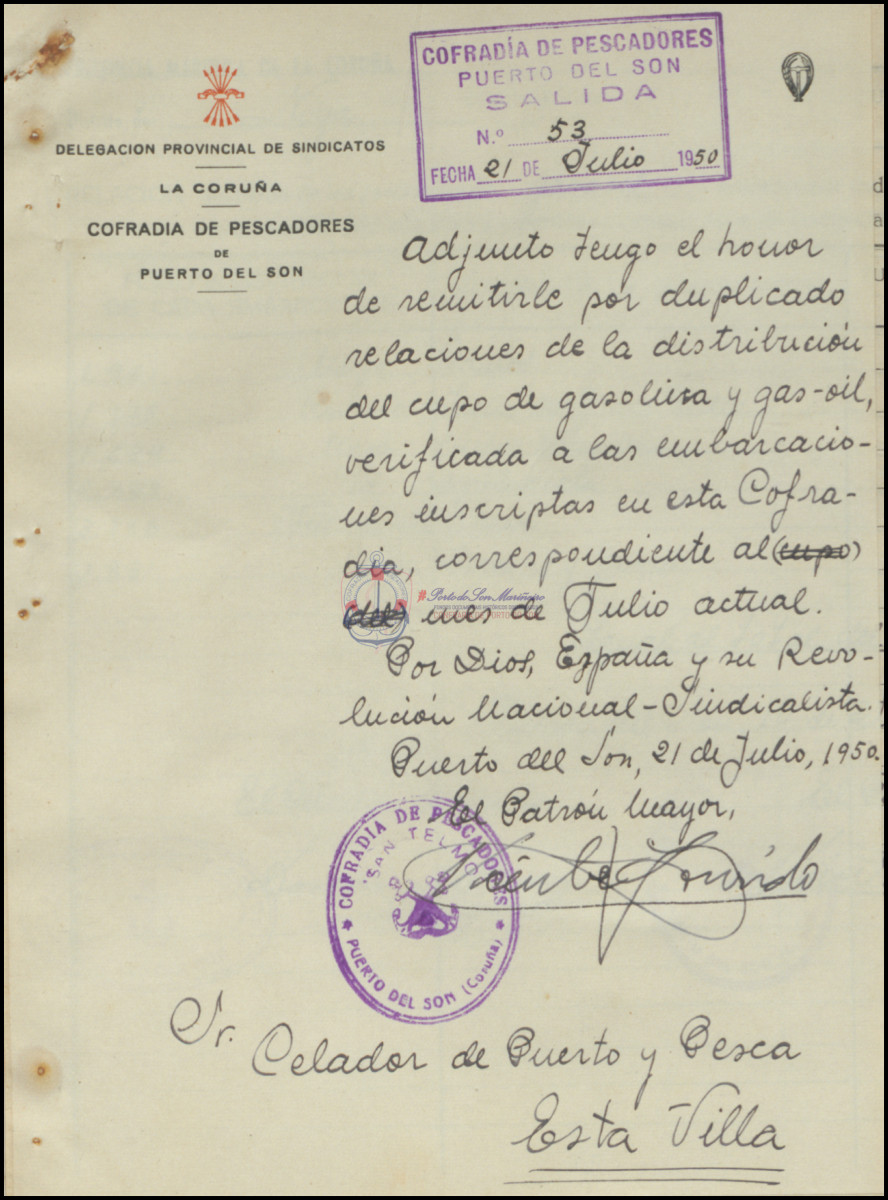 DELEGACION PROVINCIAL DE SINDICATOS
LA CORUÑA
COFRADIA DE PESCADORES
DE
PUERTO DEL SON
COFRADÍA DE PESCADORES
PUERTO DEL SON
SALIDA
N.º 53
FECHA 21 DE Julio 1950
Adjunto tengo el honor
de remitirle por duplicado
relaciones de la distribución
del cupo de gasolina y gas-oil,
verificada a las embarcacio-
nes inscriptas en esta Cofra-
dia, correspondiente al (cupo)
(del) mes de Julio actual.
#Porto do Son Mariñeiro
Por Dios, España y su Revo-
lución Nacional-Sindicalista.
Puerto del Son, 21 de Julio, 1950.
El Patrón Mayor,
COFRADIA DE PESCADORES
"SAN TELMO"
PUERTO DEL SON (Coruña)
Sr.
Celador de Puerto y Pesca
Esta Villa